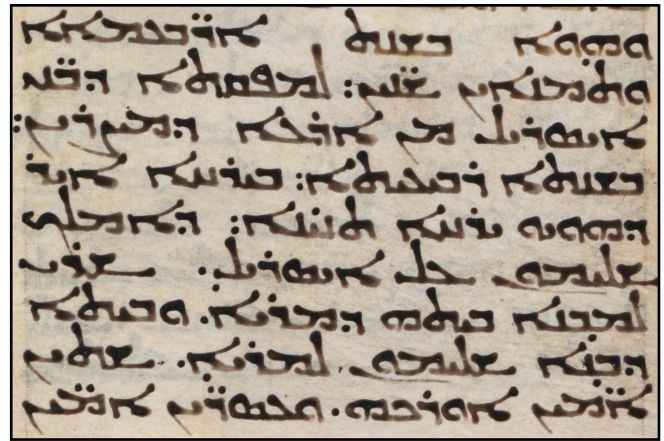 ܘܗܘܐ ܒܫܢܬ ܐܪ̈ܒܥܡܐܐ
ܘܬܡܢܐܝܢ ܫܢ̈ܝܢ: ܠܡܦܩܬܐ ܕܒ̈ܢܝ
ܐܝܣܪܝܠ ܡܢ ܐܪܥܐ ܕܡܨܪܝܢ:
ܒܫܢܬܐ ܪܒܝܥܬܐ: ܒܝܪܚܐ ܐܝܪ
ܕܗܘܝܘ ܝܪܚܐ ܬܪܝܢܐ: ܕܐܡܠܟ
ܫܠܝܡܘܢ ܥܠ ܐܝܣܪܝܠ. ܫܪܝ
ܠܡܒܢܐ ܒܝܬܗ ܕܡܪܝܐ. ܘܒܝܬܐ
ܕܒܢܐ ܫܠܝܡܘܢ ܠܡܪܝܐ. ܫܬܝܢ
ܐܡ̈ܝܢ ܐܘܪܟܗ. ܘܥܣܪ̈ܝܢ ܐܡ̈ܝܢ